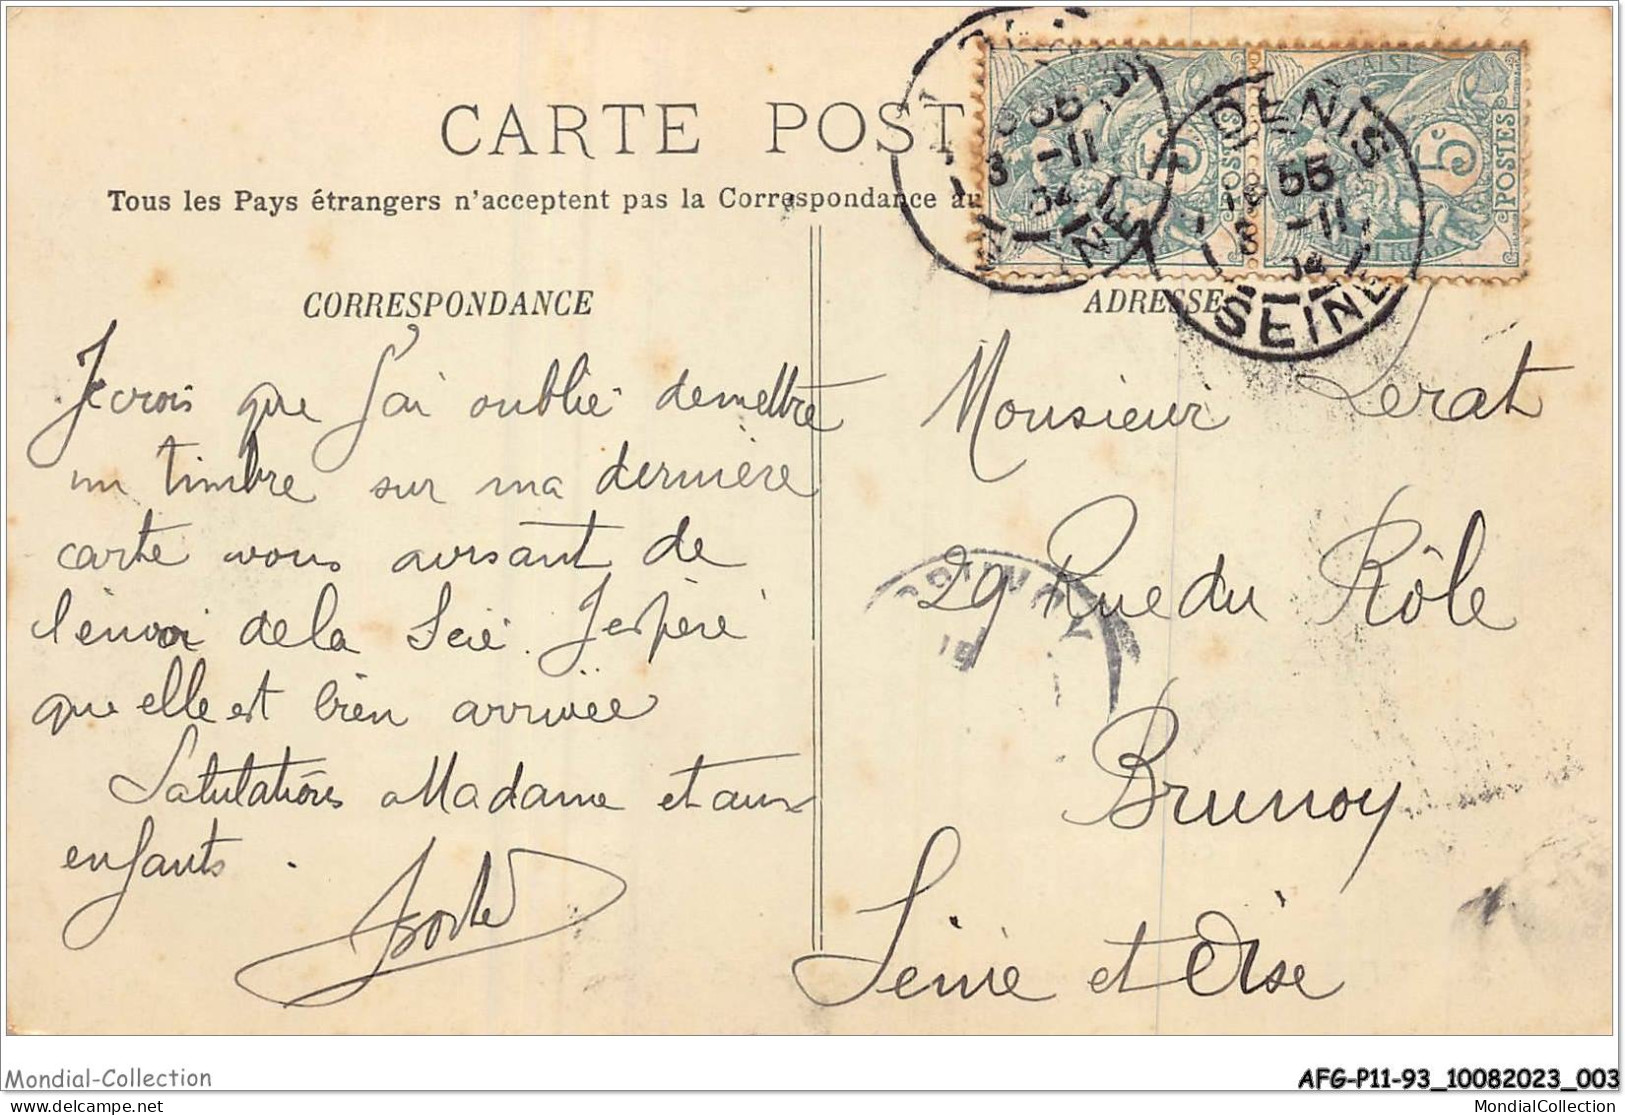 CARTE POST
Tous les Pays étrangers n'acceptent pas la Correspondance au
CORRESPONDANCE
ADRESSE
DENIS
55
-11
SEINE
55
3 -11
04
5c
POSTES
5c
POSTES
Je crois que j'ai oublié demettre
un timbre sur ma dernière
carte vous avisant de
l'envoi dela Scie. J'espère
que elle est bien arrivée
Salutations a Madame et aux
enfants.
Monsieur Lerat
29 Rue du Rôle
Brunoy
Seine et Oise
Mondial-Collection
AFG-P11-93_10082023_003
MondialCollection